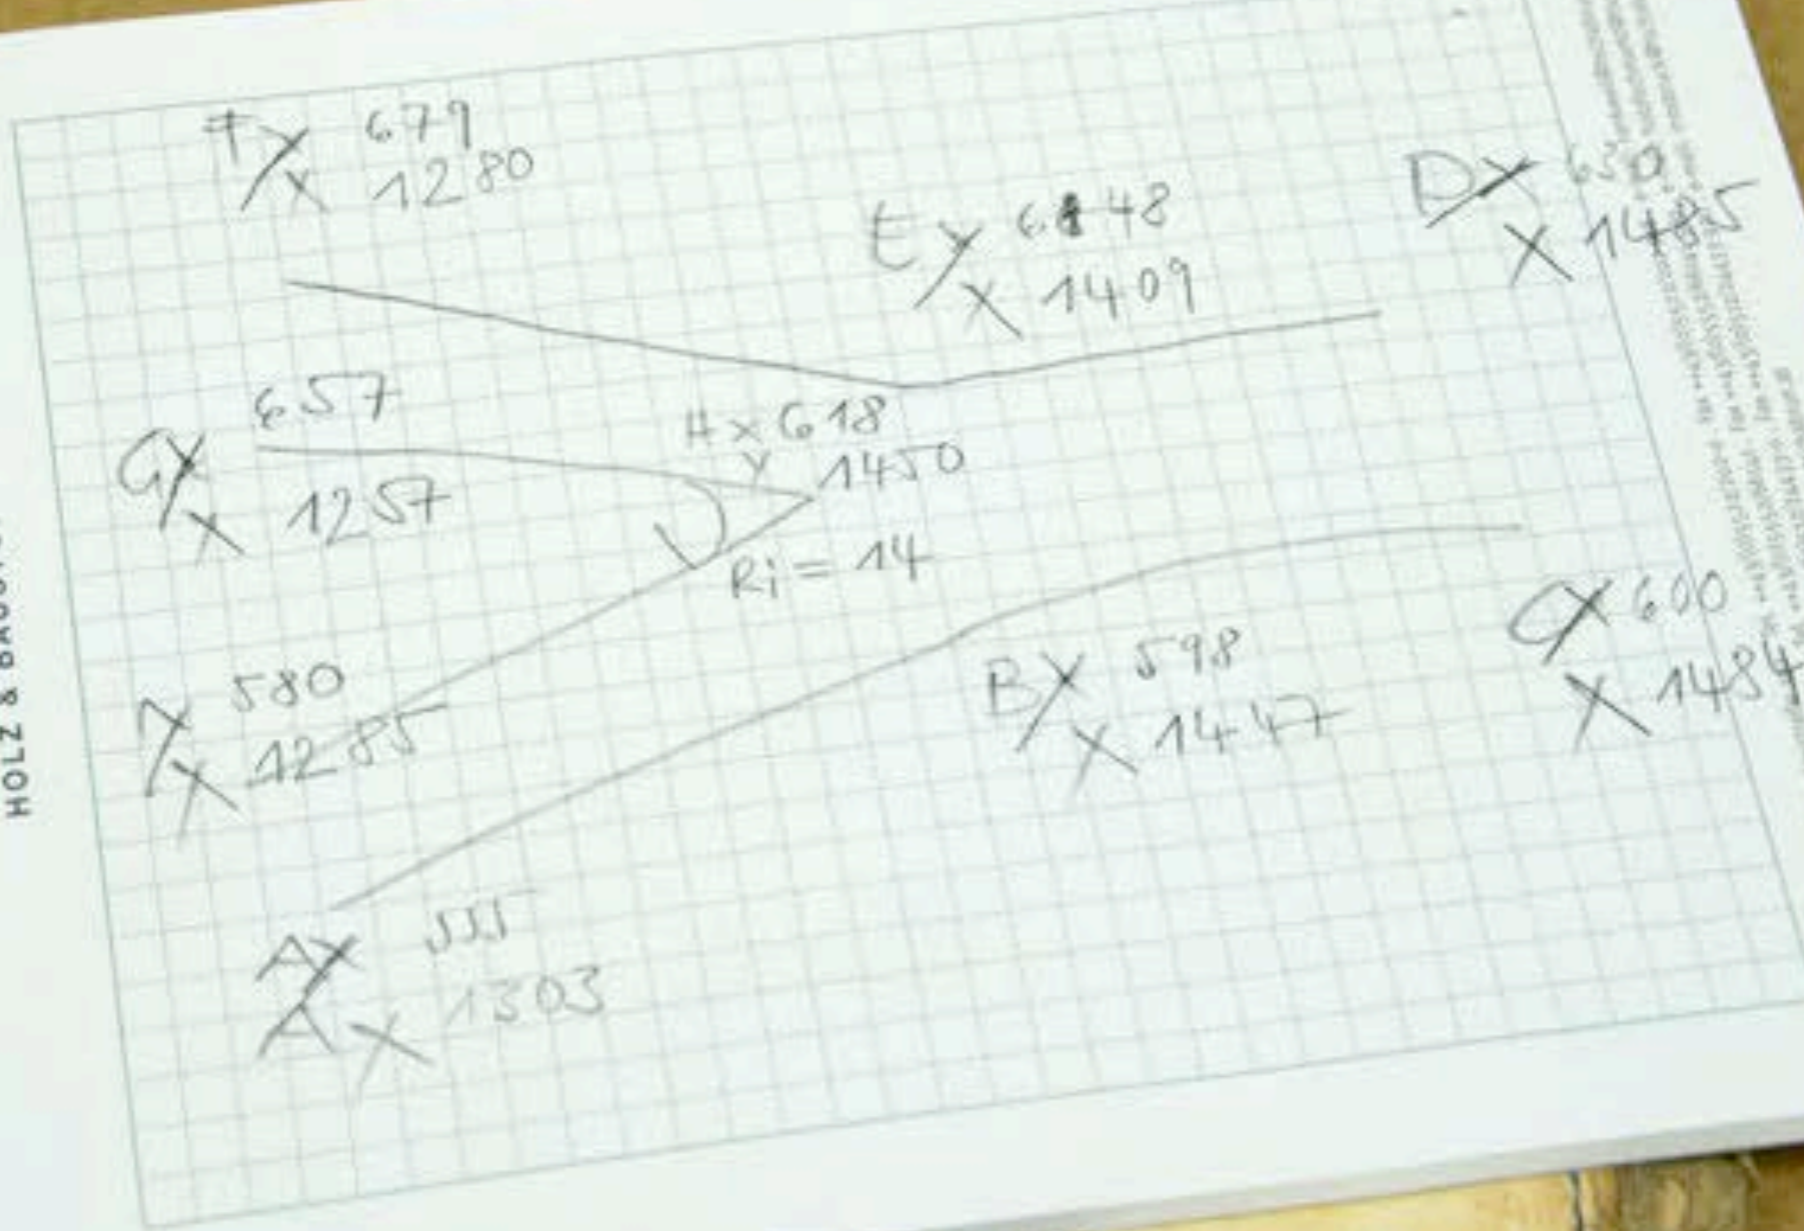 F y 679
x 1280
E y 648
x 1409
D y 650
x 1485
G y 657
x 1257
H x 618
y 1450
Ri = 14
y 580
x 1285
B y 598
x 1447
C y 600
x 1484
A y 555
A x 1303